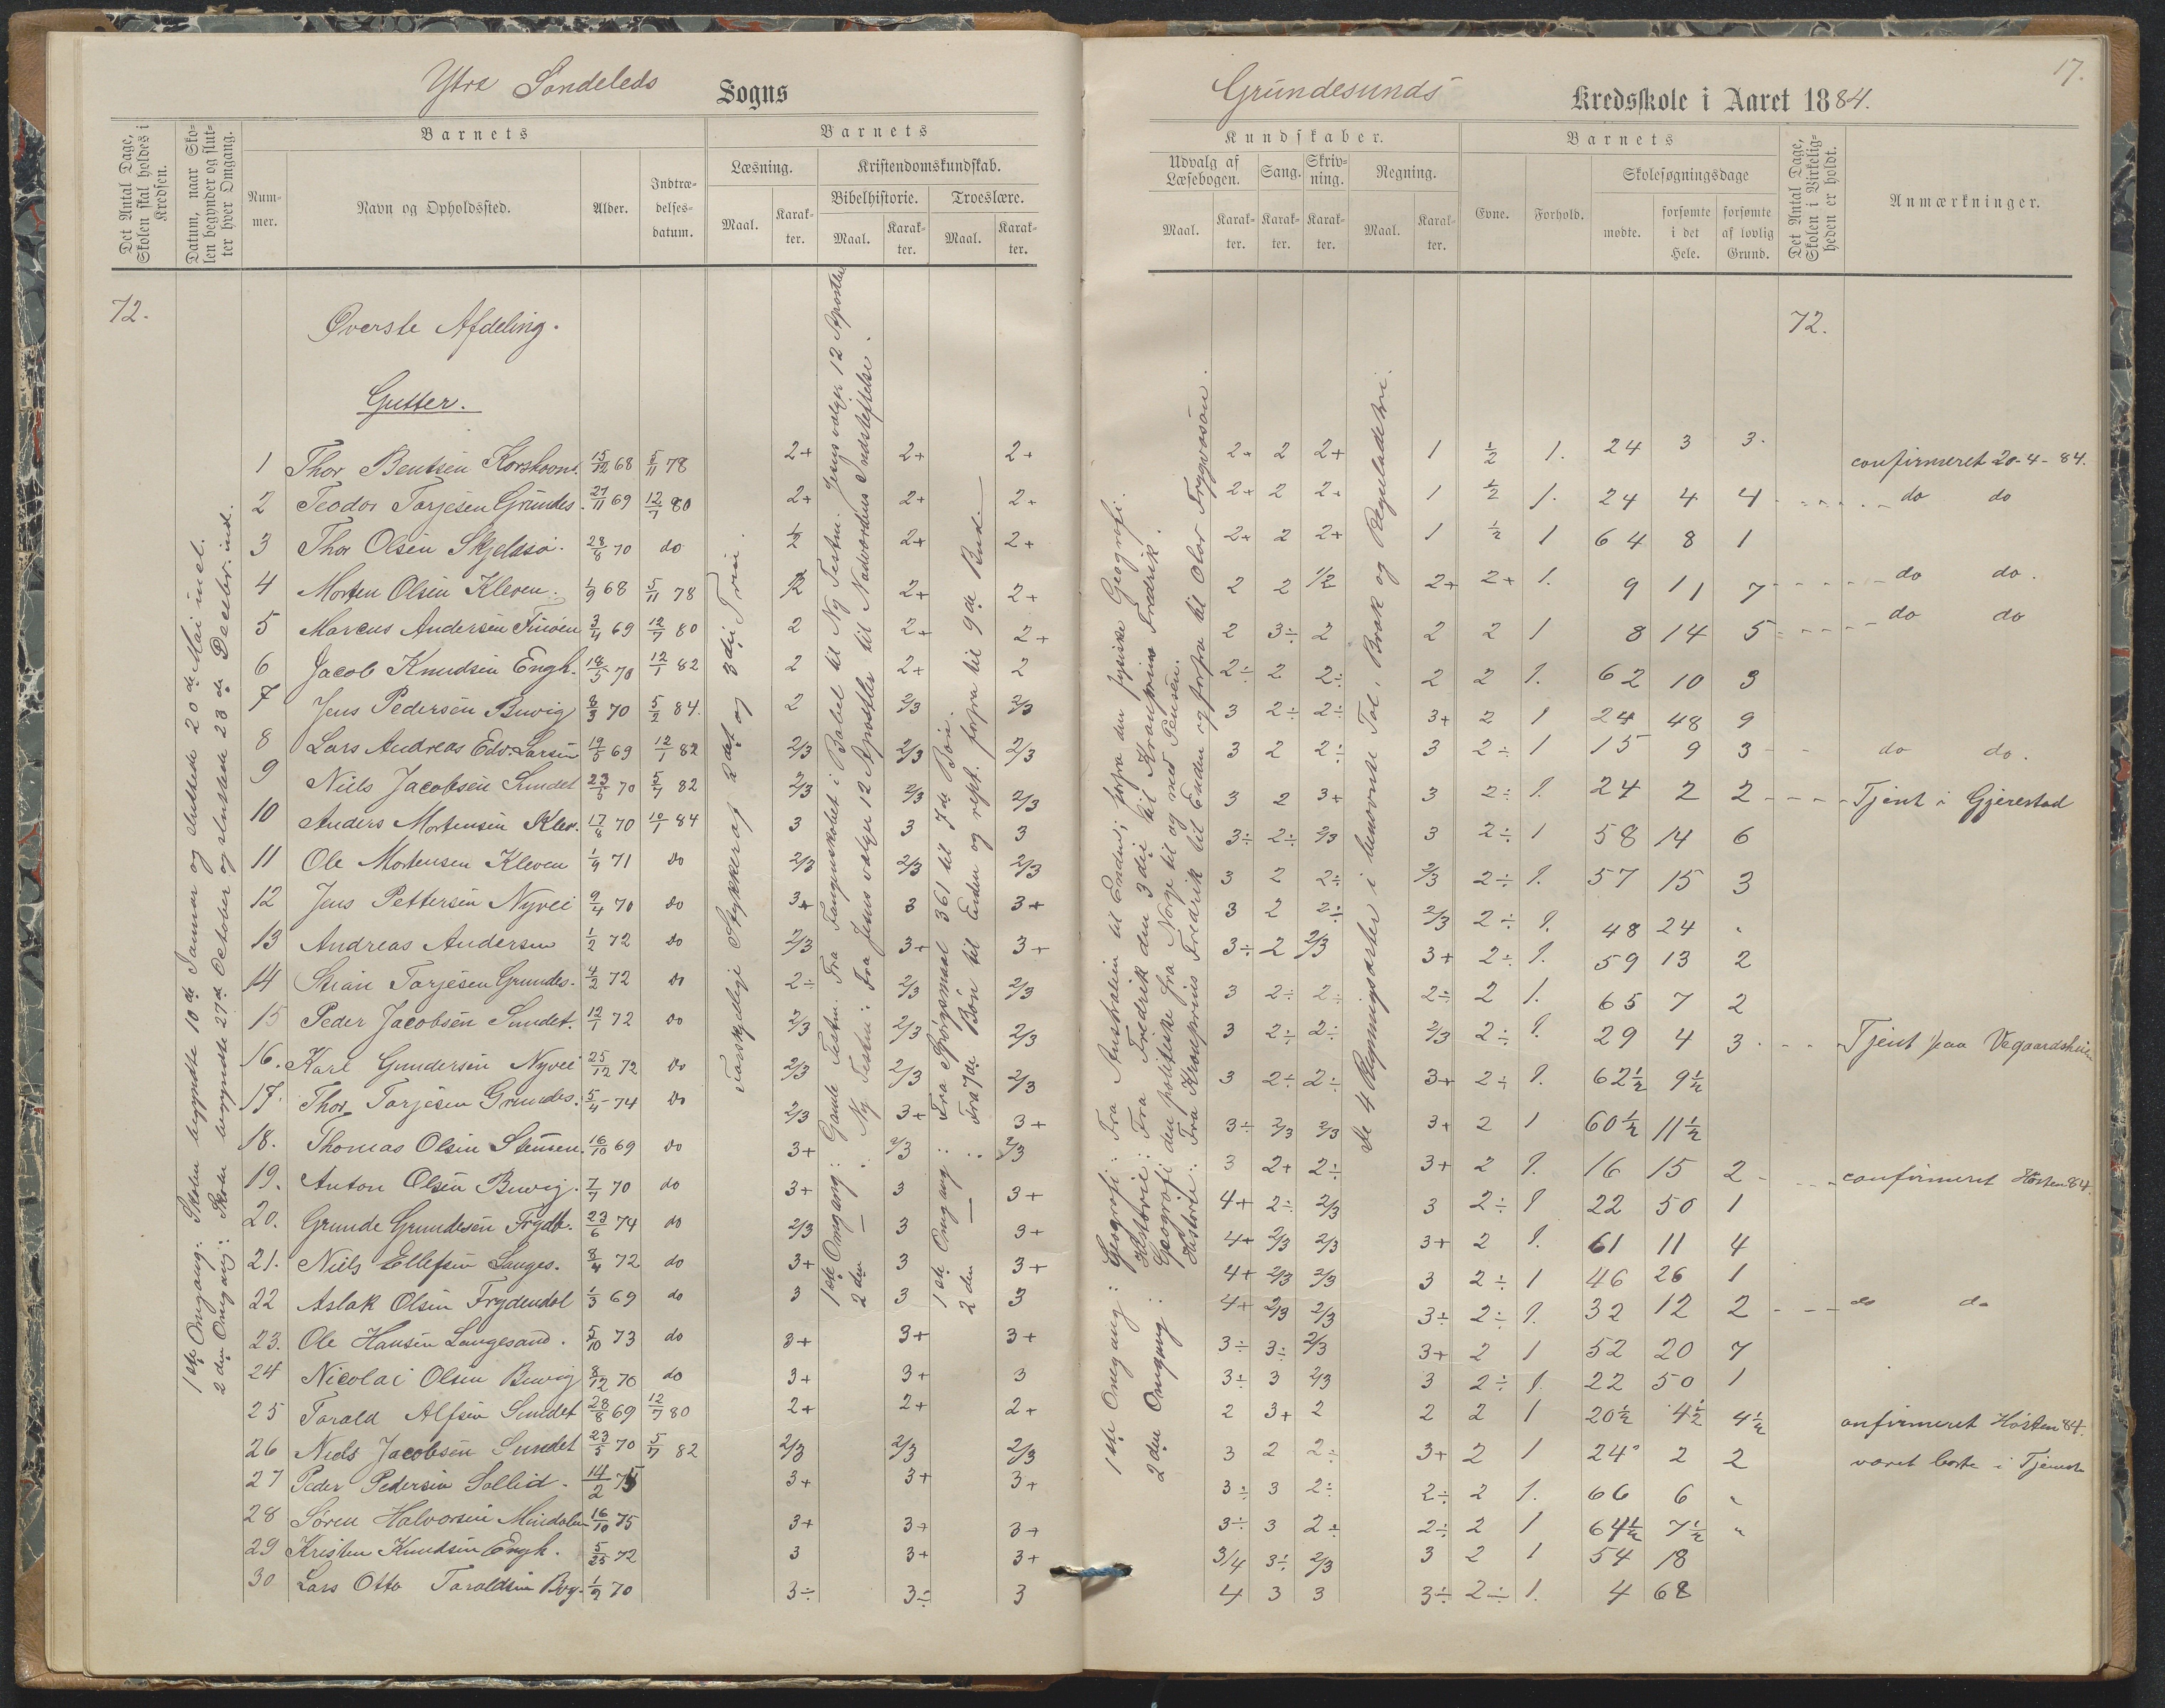 Ytre Søndeleds Sogns
Grundesunds Kredsskole i Aaret 1884.
17.
Det Antal Dage, Skolen skal holdes i Kredsen.
Datum, naar Skolen begynder og slutter hver Omgang.
Barnets
Nummer.
Navn og Opholdssted.
Alder.
Indtrædelsesdatum.
Barnets
Læsning.
Maal.
Karakter.
Kristendomskundskab.
Bibelhistorie.
Maal.
Karakter.
Troeslære.
Maal.
Karakter.
Kundskaber.
Udvalg af Læsebogen.
Maal.
Karakter.
Sang.
Karakter.
Skrivning.
Karakter.
Regning.
Maal.
Karakter.
Barnets
Evne.
Forhold.
Skolesøgningsdage
mødte.
forsømte i det Hele.
forsømte af lovlig Grund.
Det Antal Dage, Skolen i Virkeligheden er holdt.
Anmærkninger.
72.
72.
Øverste Afdeling.
Gutter.
1ste Omgang: Skolen begyndte 10de Januar og sluttede 20de Mai incl.
2den Omgang: Skolen begyndte 27de October og sluttede 23de Decebr. incl.
Vanskelige Stykker af 2det og 3die Trin.
1ste Omgang: Gamle Testm. Fra Fangenskabet i Babel til Ny Testm. Jesus vælger 12 Apostler
2den — : Ny Testm: Fra Jesus vælger 12 Apostler til Nadverdens Indstiftelse.
1ste Omgang: Fra Spørgsmaal 361 til 7de Bøn.
2den — : Fra 7de Bøn til Enden og rept. forfra til 9de Bud.
1ste Omgang: Geografi: Fra Australien til Enden; forfra den fysiske Geografi.
Historie: Fra Fredrik den 3die til Kronprins Fredrik.
2den Omgang: Geografi: den politiske fra Norge til og med Pensen.
Historie: Fra Kronprins Fredrik til Enden og forfra til Olav Trygvasøn.
de 4 Regningsarter i benævnte Tal, Brøk og Reguladetri.
1 Thor Bentsen Korshavns. 15/12 68 5/11 78 2+ 2+ 2+ 2+ 2 2+ 1 1/2 1. 24 3 3. confirmeret 20-4-84.
2 Teodor Torjesen Grundes. 27/11 69 12/7 80 2+ 2+ 2+ 2+ 2 2+ 1 1/2 1. 24 4 4 do do
3 Thor Olsen Skjelsø. 28/8 70 do 1/2 2+ 2+ 2+ 2 2+ 1 1/2 1 64 8 1
4 Morten Olsen Kleven. 1/9 68 5/11 78 1/2 2+ 2+ 2 2 1/2 2+ 2+ 1. 9 11 7 do do.
5 Marcus Andersen Finøen 3/4 69 12/7 80 2 2+ 2+ 2 3÷ 2 2 2 1 8 14 5 do do
6 Jacob Knudsen Engh. 18/5 70 12/1 82 2 2+ 2 2÷ 2 2÷ 2 2 1. 62 10 3
7 Jens Pedersen Buvig 8/3 70 5/2 84. 2 2/3 2/3 3 2÷ 2÷ 3+ 2 1 24 48 9
8 Lars Andreas Edv. Larsen 19/5 69 12/1 82 2/3 2/3 2/3 3 2 2÷ 3 2÷ 1 15 9 3 do do.
9 Niels Jacobsen Sundet 23/5 70 5/7 82 2/3 2/3 2/3 3 2 3+ 3 2÷ 1. 24 2 2 Tjent i Gjerestad
10 Anders Mortensen Klev. 17/8 70 10/1 84 3 3 3 3÷ 2÷ 2/3 3 2÷ 1 58 14 6
11 Ole Mortensen Kleven 1/9 71 do 2/3 2/3 2/3 3 2 2÷ 2/3 2÷ 1. 57 15 3
12 Jens Pettersen Nyvei 9/4 70 do 3+ 3 3+ 3 2 2÷ 2/3 2÷ 1. 48 24 "
13 Andreas Andersen 1/2 72 do 2/3 3+ 3+ 3÷ 2 2/3 3+ 2÷ 1. 59 13 2
14 Stian Torjesen Grundes. 4/2 72 do 2÷ 2/3 2/3 3 2÷ 2÷ 2÷ 2 1. 65 7 2
15 Peder Jacobsen Sundet. 12/1 72 do 2/3 2/3 2/3 3 2÷ 2÷ 2/3 2÷ 1. 29 4 3 Tjent paa Vegaardsheien
16. Karl Gundersen Nyvei 25/12 72 do 2/3 2/3 2/3 3 2÷ 2÷ 3+ 2÷ 1. 62 1/2 9 1/2
17. Thor Torjesen Grundes. 5/4 74 do 2/3 3+ 3+ 3÷ 2/3 2/3 3+ 2 1 60 1/2 11 1/2
18. Thomas Olsen Stensen. 16/10 69 do 3+ 2/3 2/3 3 2+ 2÷ 3+ 2 1. 16 15 2 confirmeret Høsten 84.
19. Anton Olsen Buvig. 7/7 70 do 3+ 3 3+ 4+ 2÷ 2/3 3 2÷ 1 22 50 1
20. Grunde Grundesen Frydl. 23/6 74 do 2/3 3 3+ 4+ 2/3 2/3 3+ 2 1. 61 11 4
21. Niels Ellefsen Langes. 8/4 72 do 3+ 3 3+ 4+ 2/3 2/3 3 2÷ 1 46 26 1
22 Aslak Olsen Frydendal 1/3 69 do 3 3 3 4+ 2/3 2/3 3÷ 2÷ 1. 32 12 2 do do
23. Ole Hansen Langesand. 5/10 73 do 3+ 3+ 3+ 3÷ 3÷ 2/3 3+ 2 1 52 20 7
24 Nicolai Olsen Buvig 8/12 70 do 3+ 3+ 3 3÷ 3 2/3 3 2÷ 1. 22 50 1
25 Torald Alfsen Sundet 28/8 69 12/7 80 2+ 2+ 2+ 2 3+ 2 2 2 1 20 1/2 4 1/2 4 1/2 onfirmeret Høsten 84.
26 Niels Jacobsen Sundet 23/5 70 5/7 82 2/3 2/3 2/3 3 2 2÷ 3+ 2 1 24 2 2 været borte i Tjeneste
27 Peder Pedersen Sollid. 14/2 75 3+ 3+ 3+ 3÷ 3 2÷ 2÷ 2 1. 66 6 "
28 Søren Halvorsen Mindalen 16/10 75 3+ 3+ 3+ 3÷ 3 2÷ 2÷ 2 1 64 1/2 7 1/2 "
29 Kristen Knudsen Engh. 5/25 72 3 3+ 3+ 3/4 3÷ 2/3 3 2 1 54 18
30 Lars Otto Taraldsen 1/9 70 3÷ 3÷ 3 4 3 3 3÷ 2÷ 1. 4 68